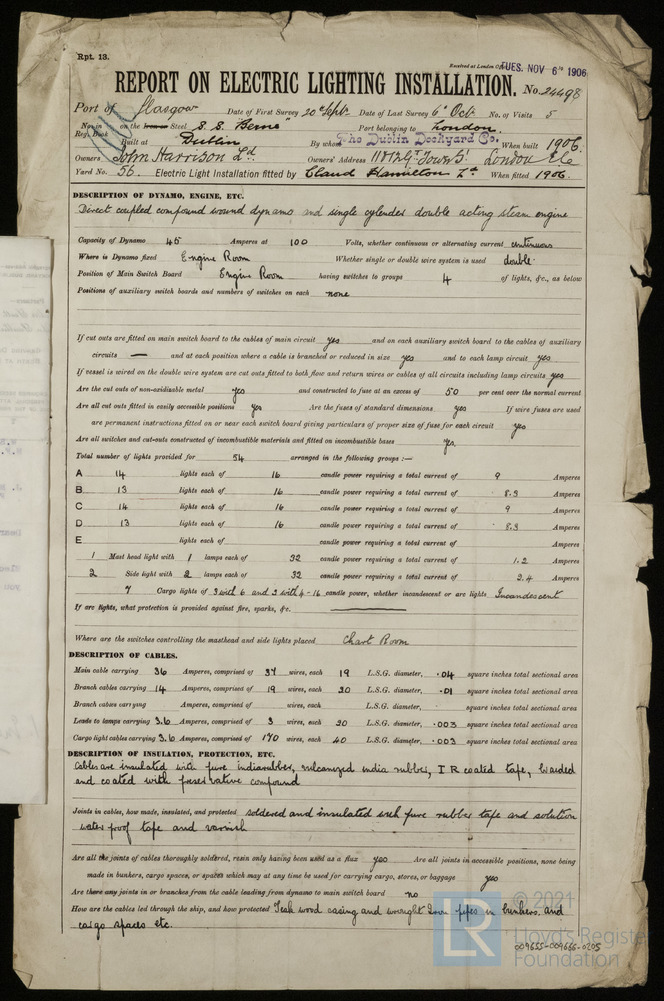 Rpt. 13.
Received at London
TUES. NOV 6TH 1906
REPORT ON ELECTRIC LIGHTING INSTALLATION. No. 24498
Port of Glasgow Date of First Survey 20th Sept Date of Last Survey 6th Oct No. of Visits 5
No. in Reg. Book on the Iron or Steel S.S. "Berne" Port belonging to London
Built at Dublin By whom The Dublin Dockyard Co. When built 1906
Owners John Harrison Ld Owners' Address London E.C.
Yard No. 56. Electric Light Installation fitted by Claud Hamilton Ld When fitted 1906
DESCRIPTION OF DYNAMO, ENGINE, ETC.
Direct coupled compound wound dynamo and single cylinder double acting steam engine
Capacity of Dynamo 45 Amperes at 100 Volts, whether continuous or alternating current continuous
Where is Dynamo fixed Engine Room Whether single or double wire system is used double
Position of Main Switch Board Engine Room having switches to groups 4 of lights, &c., as below
Positions of auxiliary switch boards and numbers of switches on each none
If cut outs are fitted on main switch board to the cables of main circuit yes and on each auxiliary switch board to the cables of auxiliary
circuits — and at each position where a cable is branched or reduced in size yes and to each lamp circuit yes
If vessel is wired on the double wire system are cut outs fitted to both flow and return wires or cables of all circuits including lamp circuits yes
Are the cut outs of non-oxidizable metal yes and constructed to fuse at an excess of 50 per cent over the normal current
Are all cut outs fitted in easily accessible positions yes Are the fuses of standard dimensions yes If wire fuses are used
are permanent instructions fitted on or near each switch board giving particulars of proper size of fuse for each circuit yes
Are all switches and cut-outs constructed of incombustible materials and fitted on incombustible bases yes.
Total number of lights provided for 54 arranged in the following groups :—
A 14 lights each of 16 candle power requiring a total current of 9 Amperes
B 13 lights each of 16 candle power requiring a total current of 8.3 Amperes
C 14 lights each of 16 candle power requiring a total current of 9 Amperes
D 13 lights each of 16 candle power requiring a total current of 8.3 Amperes
E lights each of candle power requiring a total current of Amperes
1 Mast head light with 1 lamps each of 32 candle power requiring a total current of 1.2 Amperes
2 Side light with 2 lamps each of 32 candle power requiring a total current of 2.4 Amperes
7 Cargo lights of 3 with 6 and 3 with 4 - 16 candle power, whether incandescent or arc lights Incandescent
If arc lights, what protection is provided against fire, sparks, &c.
Where are the switches controlling the masthead and side lights placed Chart Room
DESCRIPTION OF CABLES.
Main cable carrying 36 Amperes, comprised of 37 wires, each 19 L.S.G. diameter, .04 square inches total sectional area
Branch cables carrying 14 Amperes, comprised of 19 wires, each 20 L.S.G. diameter, .01 square inches total sectional area
Branch cables carrying Amperes, comprised of wires, each L.S.G. diameter, square inches total sectional area
Leads to lamps carrying 3.6 Amperes, comprised of 3 wires, each 20 L.S.G. diameter, .003 square inches total sectional area
Cargo light cables carrying 3.6 Amperes, comprised of 170 wires, each 40 L.S.G. diameter, .003 square inches total sectional area
DESCRIPTION OF INSULATION, PROTECTION, ETC.
Cables are insulated with pure indiarubber, vulcanized india rubber, I R coated tape, braided
and coated with preservative compound
Joints in cables, how made, insulated, and protected soldered and insulated with pure rubber tape and solution
water proof tape and varnish
Are all the joints of cables thoroughly soldered, resin only having been used as a flux yes Are all joints in accessible positions, none being
made in bunkers, cargo spaces, or spaces which may at any time be used for carrying cargo, stores, or baggage yes
Are there any joints in or branches from the cable leading from dynamo to main switch board no
How are the cables led through the ship, and how protected Teak wood casing and wrought Iron pipes in bunkers and
cargo spaces etc.
© 2021
LR
Lloyd's Register
Foundation
009655-009666-0205